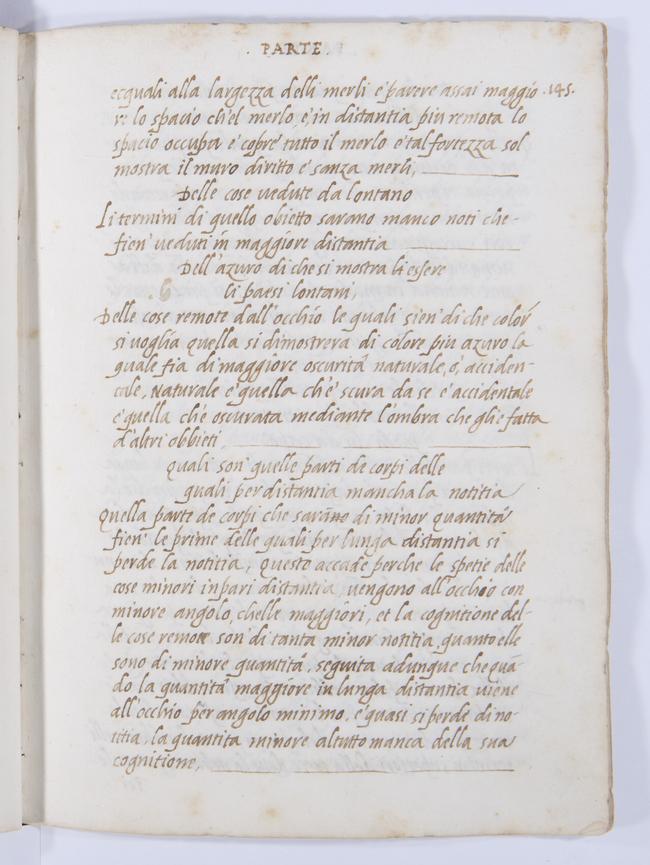 . PARTE .
145.
ecquali alla largezza delli merli e pavere assai maggio
re lo spacio ch'el merlo, e in distantia piu remota lo
spacio occupa e copre tutto il merlo e tal fortezza sol
mostra il muro diritto e sanza merli,
Delle cose vedute da lontano
Li termini di quello obietto sarano manco noti che
fien' veduti in maggiore distantia
Dell'azuro di che si mostra li essere
li paesi lontani,
Delle cose remote dall'occhio le quali sien' di che color'
si voglia quella si dimostrera di colore piu azuro la
quale fia di maggiore oscurita naturale, o, acciden-
tale, Naturale e quella ch'e scura da se e accidentale
e quella ch'e oscurata mediante l'ombra che gli e fatta
d'altri obbieti
Quali son' quelle parti de corpi delle
quali per distantia mancha la notitia
Quella parte de corpi che sarano di minor quantita
fien' le prime delle quali per lunga distantia si
perde la notitia, questo accade perche le spetie delle
cose minori in pari distantia, vengono all'occhio con
minore angolo, chelle maggiori, et la cognitione del-
le cose remote son' di tanta minor notitia, quanto elle
sono di minore quantita, seguita adunque che quā-
do la quantita maggiore in lunga distantia viene
all'occhio per angolo minimo, e quasi si perde di no-
titia, la quantita minore al tutto manca della sua
cognitione,